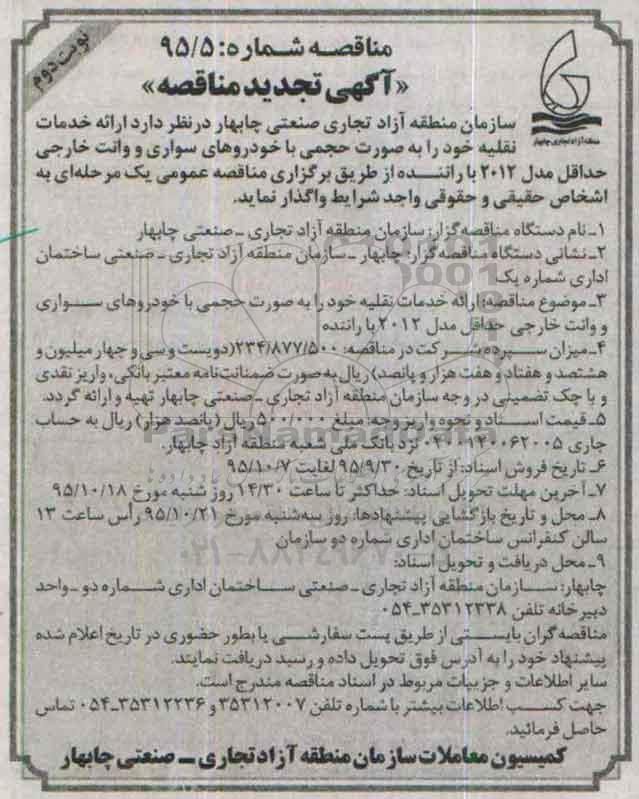 نوبت دوم
مناقصه شماره: ۹۵/۵
«آگهی تجدید مناقصه»
منطقه آزاد تجاری چابهار
سازمان منطقه آزاد تجاری صنعتی چابهار درنظر دارد ارائه خدمات
نقلیه خود را به صورت حجمی با خودروهای سواری و وانت خارجی
حداقل مدل ۲۰۱۲ با راننده از طریق برگزاری مناقصه عمومی یک مرحله‌ای به
اشخاص حقیقی و حقوقی واجد شرایط واگذار نماید.
۱ـ نام دستگاه مناقصه‌گزار: سازمان منطقه آزاد تجاری ـ صنعتی چابهار
۲ـ نشانی دستگاه مناقصه‌گزار: چابهار ـ سازمان منطقه آزاد تجاری ـ صنعتی ساختمان
اداری شماره یک
۳ـ موضوع مناقصه: ارائه خدمات نقلیه خود را به صورت حجمی با خودروهای سواری
و وانت خارجی حداقل مدل ۲۰۱۲ با راننده
۴ـ میزان سپرده شرکت در مناقصه: ۲۳۴/۸۷۷/۵۰۰(دویست و سی و چهار میلیون و
هشتصد و هفتاد و هفت هزار و پانصد) ریال به صورت ضمنانت‌نامه معتبر بانکی، واریز نقدی
و یا چک تضمینی در وجه سازمان منطقه آزاد تجاری ـ صنعتی چابهار تهیه و ارائه گردد.
۵ـ قیمت اسناد و نحوه واریز وجه: مبلغ ۵۰۰/۰۰۰ ریال (پانصد هزار) ریال به حساب
جاری نزد بانک ملی شعبه منطقه آزاد چابهار.
۶ـ تاریخ فروش اسناد: از تاریخ ۹۵/۹/۳۰ لغایت ۹۵/۱۰/۷
۷ـ آخرین مهلت تحویل اسناد: حداکثر تا ساعت ۱۴/۳۰ روز شنبه مورخ ۹۵/۱۰/۱۸
۸ـ محل و تاریخ بازگشایی پیشنهادها: روز سه‌شنبه مورخ ۹۵/۱۰/۲۱ رأس ساعت ۱۳
سالن کنفرانس ساختمان اداری شماره دو سازمان
۹ـ محل دریافت و تحویل اسناد:
چابهار: سازمان منطقه آزاد تجاری ـ صنعتی ساختمان اداری شماره دو ـ واحد
دبیرخانه تلفن ۳۵۳۱۲۳۳۸ـ۰۵۴
مناقصه‌گران بایستی از طریق پست سفارشی یا بطور حضوری در تاریخ اعلام شده
پیشنهاد خود را به آدرس فوق تحویل داده و رسید دریافت نمایند.
سایر اطلاعات و جزییات مربوط در اسناد مناقصه مندرج است.
جهت کسب اطلاعات بیشتر با شماره تلفن ۳۵۳۱۲۰۰۷ و ۳۵۳۱۲۲۳۶ـ۰۵۴ تماس
حاصل فرمائید.
کمیسیون معاملات سازمان منطقه آزاد تجاری ـ صنعتی چابهار